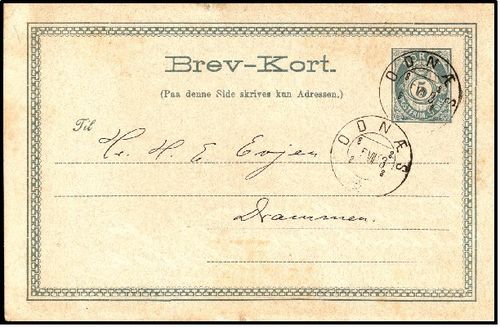 Brev-Kort.
(Paa denne Side skrives kun Adressen.)
5
ODNÆS
ODNÆS
Til
Hr. H. E. Evjen
Drammen.